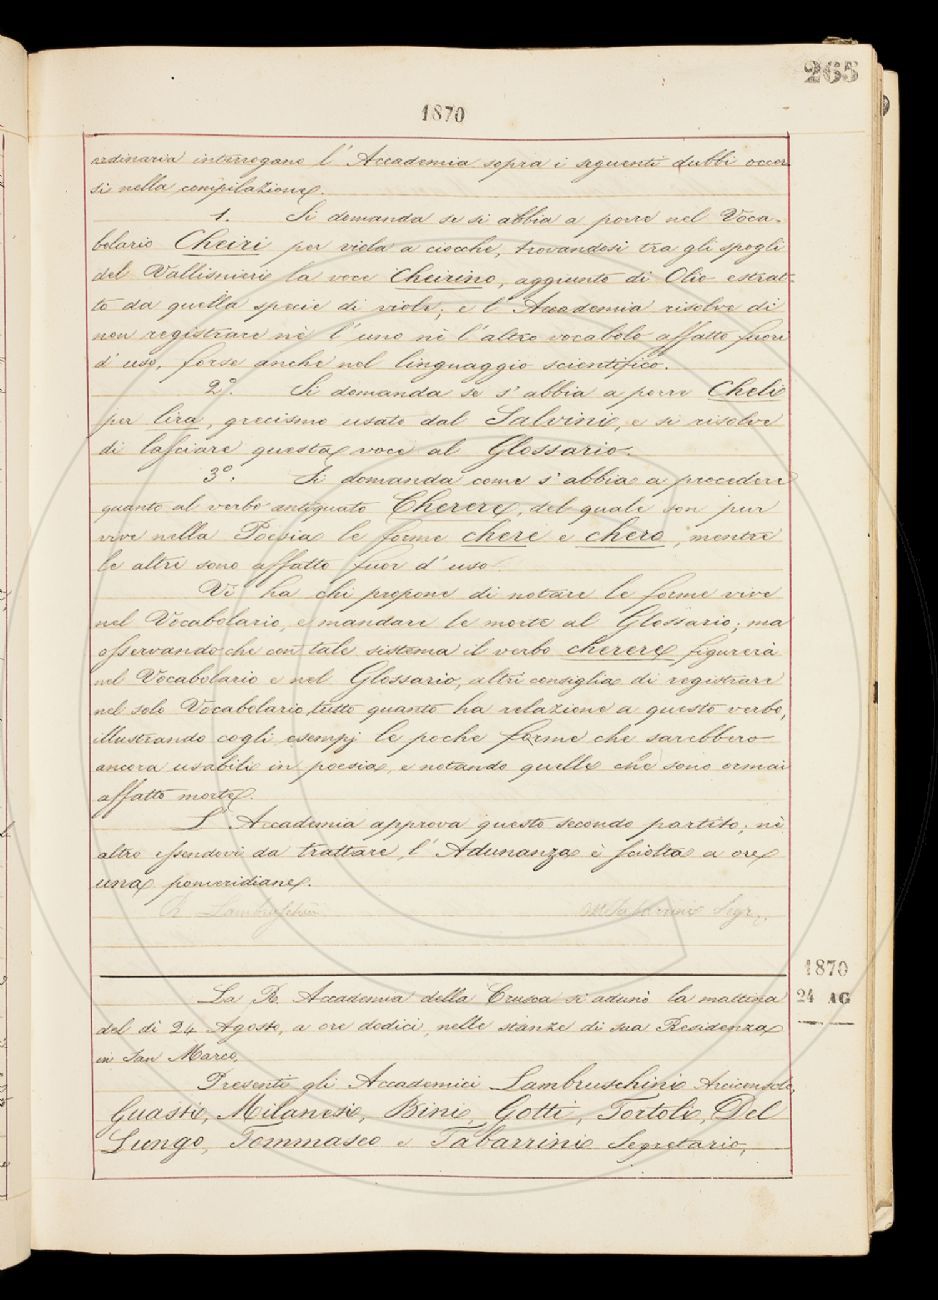 265
1870
ordinaria interrogano l'Accademia sopra i seguenti dubbi occor
si nella compilazione.
1. Si demanda se si abbia a porre nel Voca-
bolario Cheiri per viola a ciocche, trovandosi tra gli spogli
del Vallisnieri la voce Cheirino, aggiunto di Olio estrat-
to da quella specie di viole; e l'Accademia risolve di
non registrare nè l'uno nè l'altro vocabolo affatto fuori
d'uso, forse anche nel linguaggio scientifico.
2.º Si demanda se s'abbia a porre Cheli
per lira, grecismo usato dal Salvini, e si risolve
di lasciare questa voce al Glossario.
3.º Si demanda come s'abbia a procedere
quanto al verbo antiquato Cherere, del quale son pur
vive nella Poesia le forme chere e chero, mentre
le altre sono affatto fuor d'uso.
Vi ha chi propone di notare le forme vive
nel Vocabolario, e mandare le morte al Glossario; ma
osservando che con tale sistema il verbo cherere figurerà
nel Vocabolario e nel Glossario, altri consiglia di registrare
nel solo Vocabolario tutto quanto ha relazione a questo verbo,
illustrando cogli esempj le poche forme che sarebbero
ancora usabili in poesia, e notando quelle che sono ormai
affatto morte.
L'Accademia approva questo secondo partito; nè
altro essendovi da trattare, l'Adunanza è sciolta a ore
una pomeridiane.
R. Lambruschini
M. Tabarrini Segr.
1870
24 AG
La R. Accademia della Crusca si adunò la mattina
del dì 24 Agosto, a ore dodici, nelle stanze di sua Residenza
in San Marco.
Presenti gli Accademici Lambruschini Arciconsolo,
Guasti, Milanesi, Bini, Gotti, Tortoli, Del
Lungo, Tommaseo e Tabarrini Segretario,